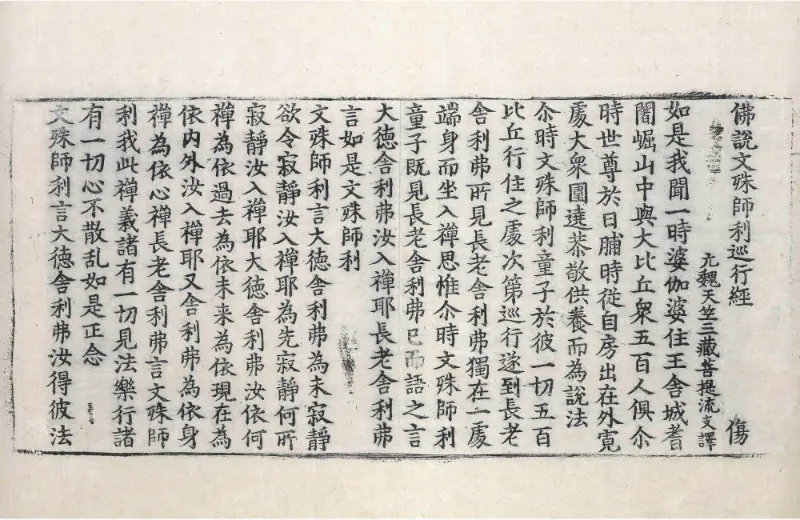 佛說文殊師利巡行經 傷
元魏天竺三藏菩提流支譯
如是我聞一時婆伽婆住王舍城耆
闍崛山中與大比丘衆五百人俱尒
時世尊於日脯時從自房出在外寬
處大衆圍遶恭敬供養而為說法
尒時文殊師利童子於彼一切五百
比丘行住之處次第巡行遂到長老
舍利弗所見長老舍利弗獨在一處
端身而坐入禪思惟尒時文殊師利
童子既見長老舍利弗已而語之言
大德舍利弗汝入禪耶長老舍利弗
言如是文殊師利
文殊師利言大德舍利弗為未寂靜
欲令寂靜汝入禪耶為先寂靜何所
寂靜汝入禪耶大德舍利弗汝依何
禪為依過去為依未来為依現在為
依內外汝入禪耶又舍利弗為依身
禪為依心禪長老舍利弗言文殊師
利我此禪義諸有一切見法樂行諸
有一切心不散乱如是正念
文殊師利言大德舍利弗汝得彼法